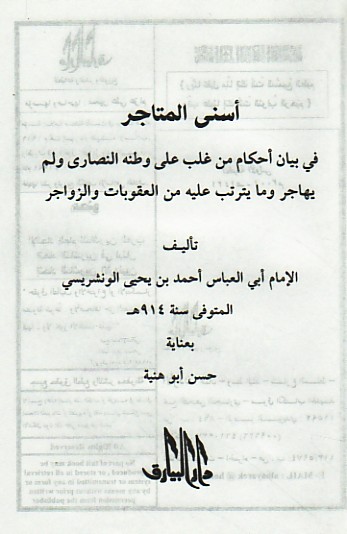 أسنى المتاجر
في بيان أحكام من غلب على وطنه النصارى ولم
يهاجر وما يترتب عليه من العقوبات والزواجر
تأليف
الإمام أبي العباس أحمد بن يحيى الونشريسي
المتوفى سنة ٩١٤هـ
بعناية
حسن أبو هنية
دار البيارق